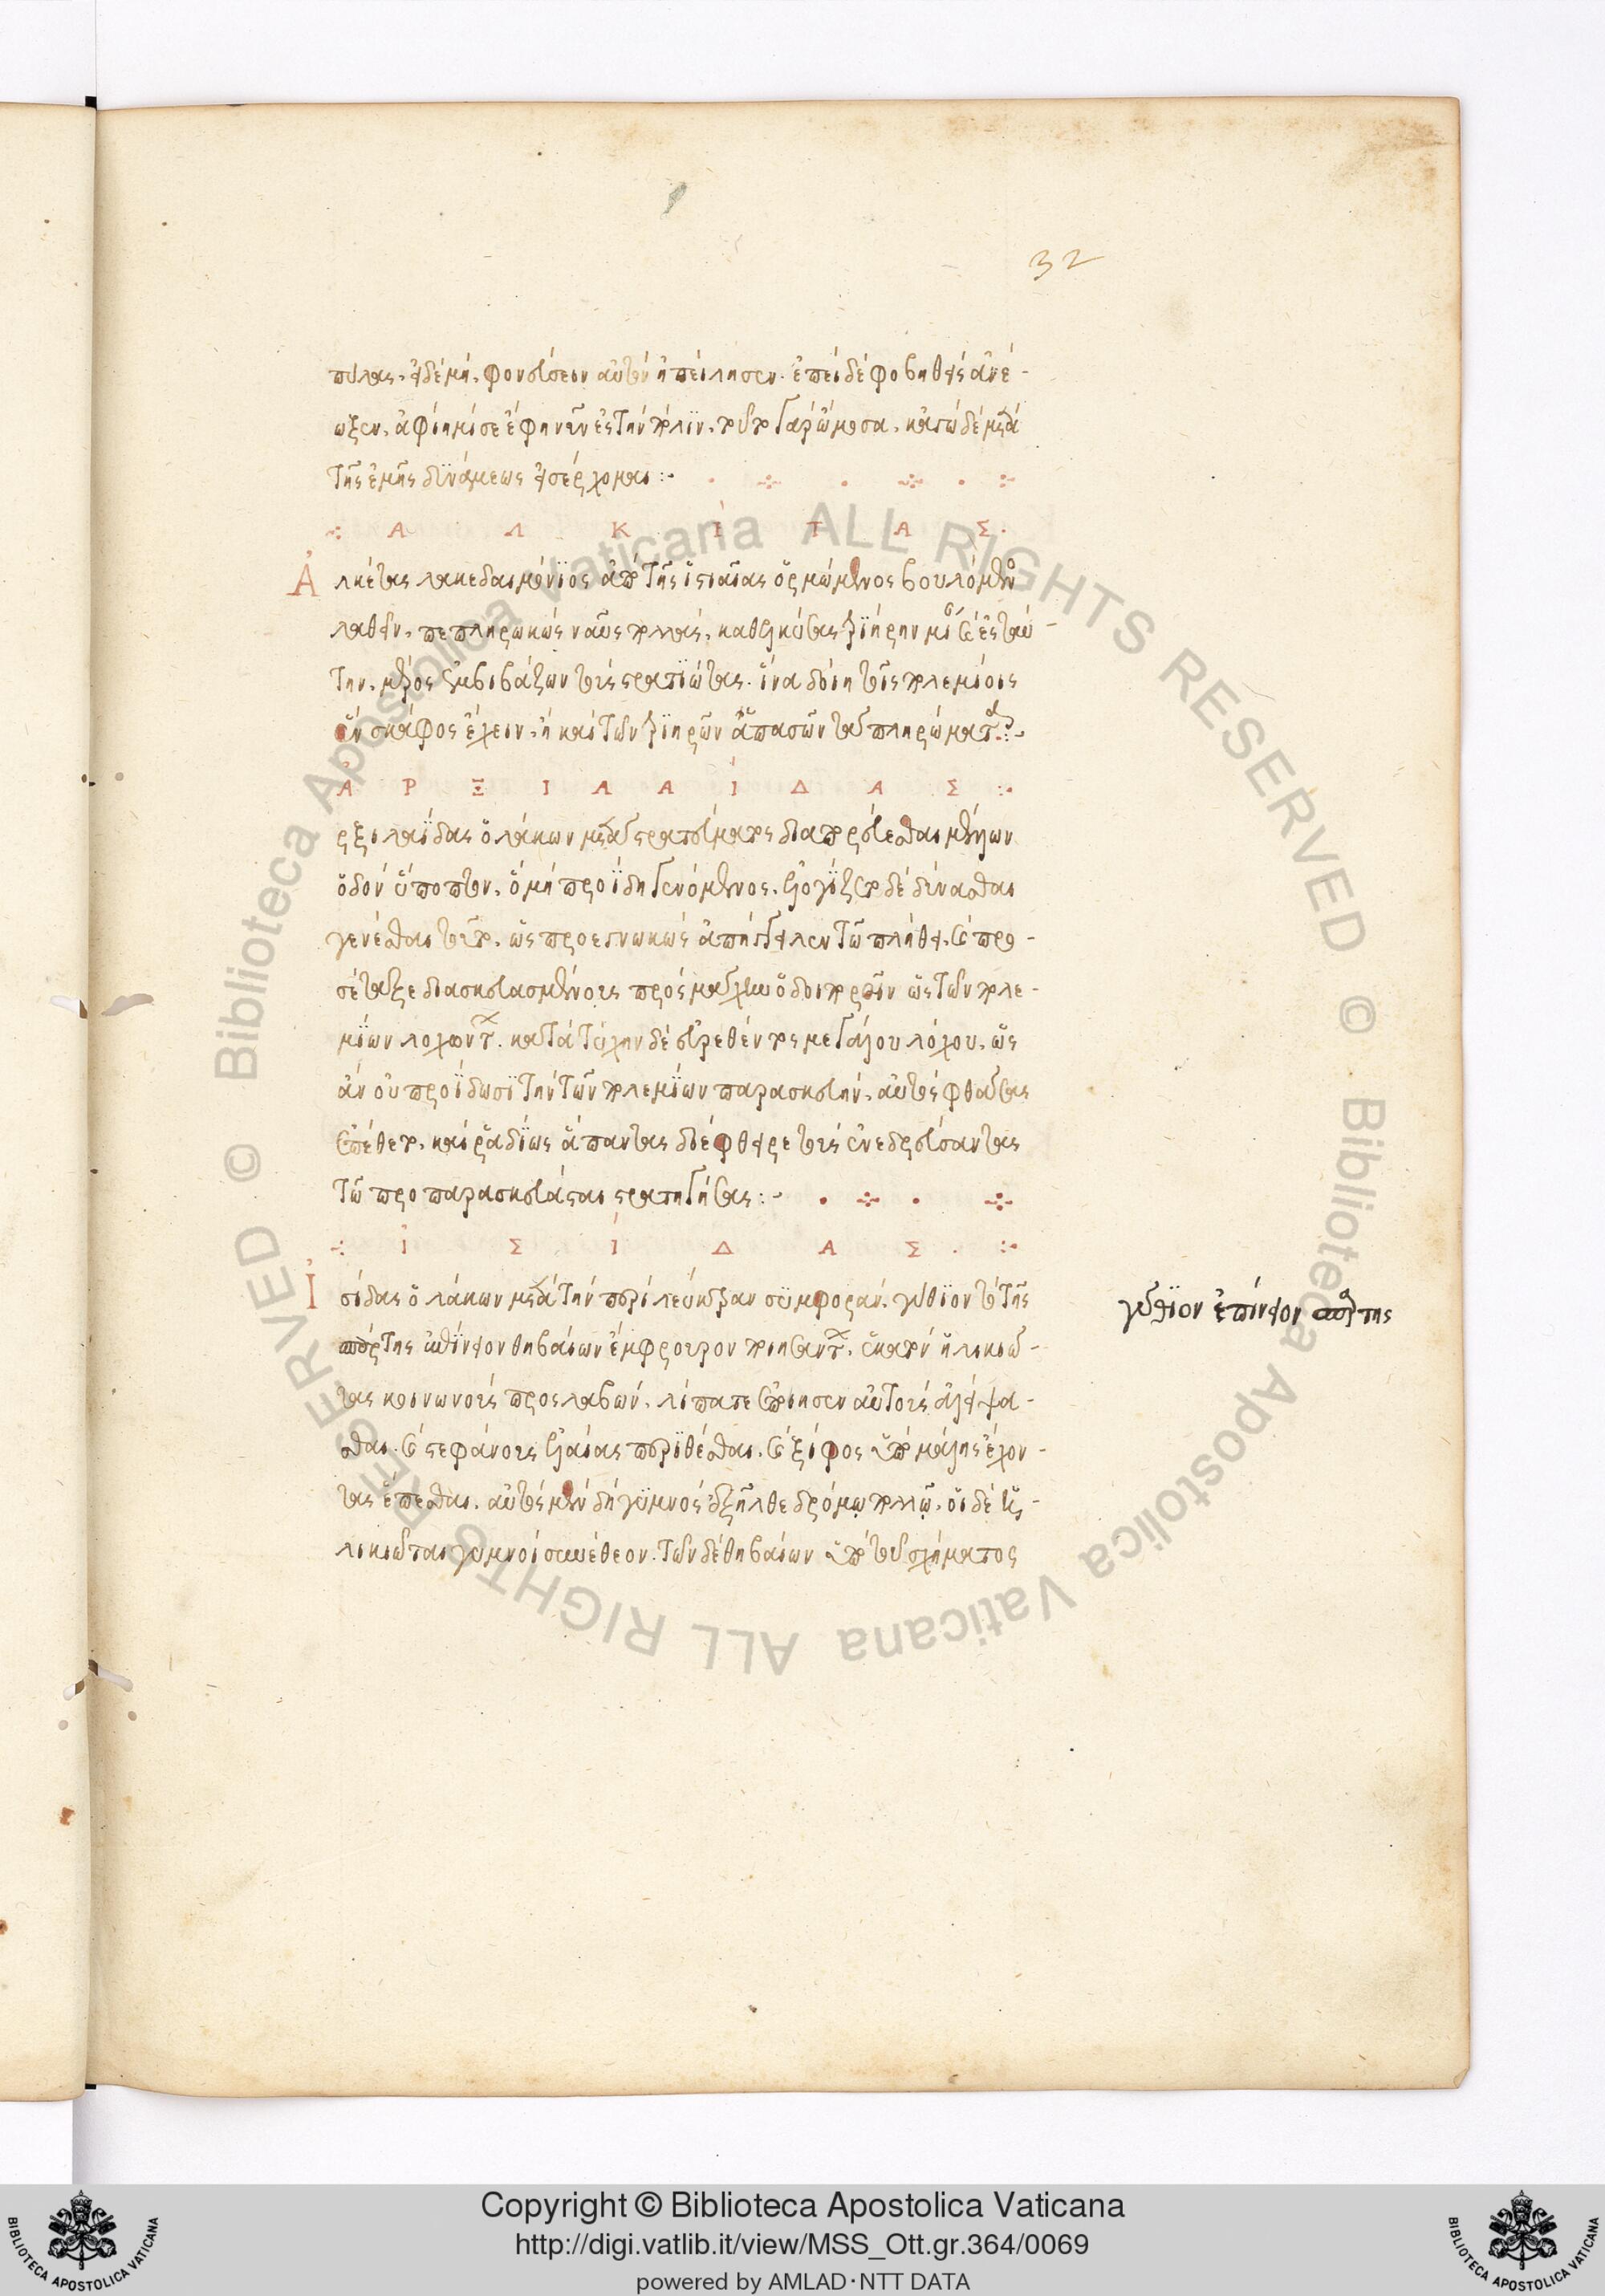 32
πύλας, εἰ δὲ μὴ, φονεύσειν αὐτὸν ἠπείλησεν. ἐπεὶ δὲ φοβηθεὶς ἀνέ-
ωξεν, ἀφίημί σε ἔφη νῦν ἐς τὴν πόλιν, τοῦτο γὰρ ὤμοσα, κἀγὼ δὲ μετὰ
τῆς ἐμῆς δϋνάμεως εἰσέρχομαι :-
Α Λ Κ Ε Τ Α Σ.
Ἀλκέτας λακεδαιμόνϊος ἀπὸ τῆς ἱστιαίας ὁρμώμενος βουλόμενος
λαθεῖν, πεπληρωκὼς ναῦς πολλὰς, καθεικύσας τρϊήρην μίαν καὶ ἐς ταύ-
την, μέρος ἐμβιβάζων τοὺς στρατϊώτας. ἵνα δοίη τοῖς πολεμίοις
ἓν σκάφος ἔχειν, ἢ καὶ τῶν τρϊηρῶν ἁπασῶν τὰ πληρώματα :-
Ἀ Ρ Ξ Ι Λ Α Ί Δ Α Σ :-
ρξιλαΐδας ὁ λάκων μετὰ στρατεύματος διαπορεύεσθαι μέλλων
ὁδὸν ὕποπτον, ὃ μὴ προΐδη γενόμενος, ἐλογΐζετο δὲ δύνασθαι
γενέσθαι τοῦτο, ὡς προεγνωκὼς ἀπήγγειλεν τῷ πλήθει, καὶ προ-
σέταξε διασκευασμένους πρὸς μάχην ὁδοιπορεῖν ὡς τῶν πολε-
μΐων λοχώντων. κατὰ τύχην δὲ εὑρεθέντος μεγάλου λόχου, ὡς
ἂν οὐ προΐδωσϊ τὴν τῶν πολεμΐων παρασκευὴν, αὐτὸς φθάσας
ἐπέθετο, καὶ ῥᾳδΐως ἅπαντας διέφθειρε τοὺς ἐνεδρεύσαντας
τῷ προπαρασκευάσαι στρατηγήσας :-
Ἰ Σ Ί Δ Α Σ . :-
Ἰσίδας ὁ λάκων μετὰ τὴν περὶ λεύκτραν σϋμφορὰν, γύθϊον τὸ τῆς
σπάρτης ἐπίνειον θηβαίων ἔμφρουρον ποιησάντων, ἑκατὸν ἡλικιώ-
τας κοινωνοὺς προσλαβὼν, λίπα τε ἐποίησεν αὐτοὺς ἀλείψα-
σθαι. καὶ στεφάνους ἐλαίας περϊθέσθαι, καὶ ξίφος ὑπὸ μάλης ἔχον-
τας ἕπεσθαι. αὐτὸς μὲν δὴ γϋμνὸς ἐξῆλθε δρόμῳ πολλῷ, οἱ δὲ ἡ-
λικιῶται γυμνοὶ συνέθεον. τῶν δὲ θηβαίων ὑπὸ τοῦ σχήματος
γύθϊον ἐπίνειον σπάρτης
Copyright © Biblioteca Apostolica Vaticana
http://digi.vatlib.it/view/MSS_Ott.gr.364/0069
powered by AMLAD·NTT DATA
BIBLIOTECA APOSTOLICA VATICANA
BIBLIOTECA APOSTOLICA VATICANA
© Biblioteca Apostolica Vaticana ALL RIGHTS RESERVED
© Biblioteca Apostolica Vaticana ALL RIGHTS RESERVED